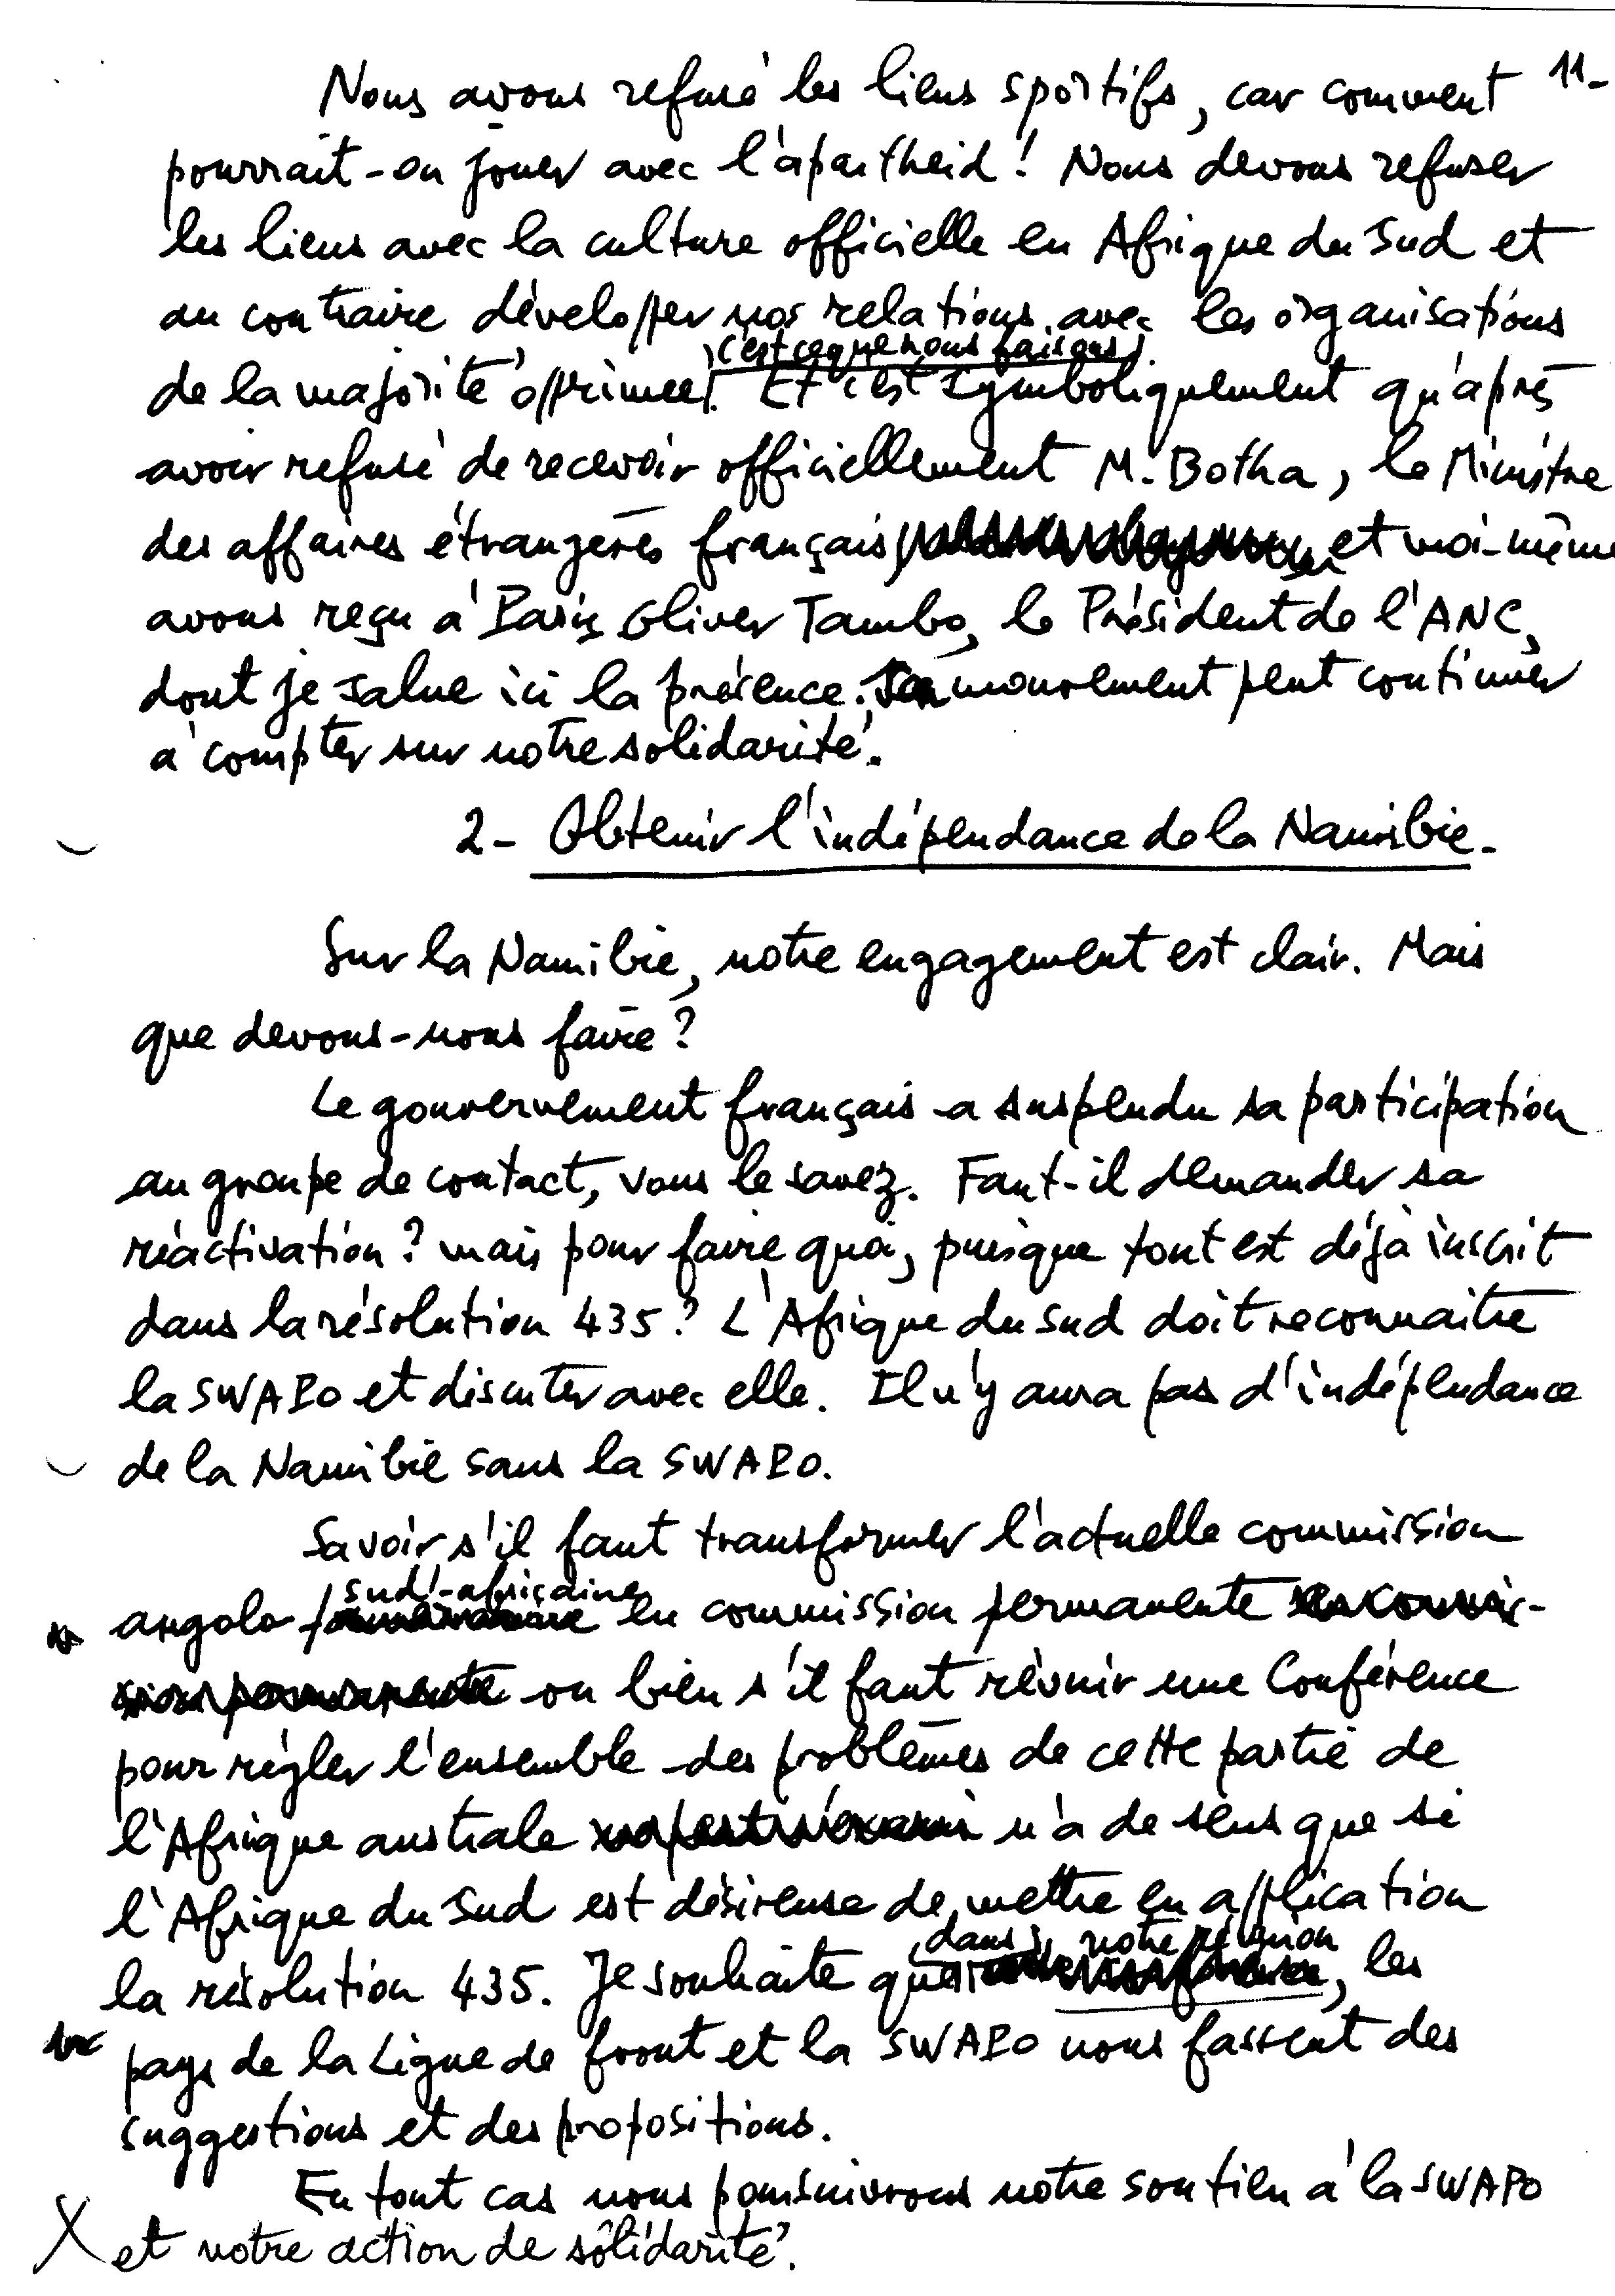 11-
Nous avons refusé les liens sportifs, car comment
pourrait-on jouer avec l'apartheid! Nous devons refuser
les liens avec la culture officielle en Afrique du Sud et
au contraire développer nos relations avec les organisations
(c'est ce que nous faisons).
de la majorité opprimée. Et c'est symboliquement qu'après
avoir refusé de recevoir officiellement M. Botha, le Ministre
des affaires étrangères français et moi-même
avons reçu à Paris Oliver Tambo, le Président de l'ANC,
dont je salue ici la présence. Son mouvement peut continuer
à compter sur notre solidarité.
2- Obtenir l'indépendance de la Namibie.
Sur la Namibie, notre engagement est clair. Mais
que devons-nous faire?
Le gouvernement français a suspendu sa participation
au groupe de contact, vous le savez. Faut-il demander sa
réactivation? mais pour faire quoi, puisque tout est déjà inscrit
dans la résolution 435? L'Afrique du Sud doit reconnaître
la SWAPO et discuter avec elle. Il n'y aura pas d'indépendance
de la Namibie sans la SWAPO.
Savoir s'il faut transformer l'actuelle commission
sud-africaine
angolo en commission permanente
ou bien s'il faut réunir une Conférence
pour régler l'ensemble des problèmes de cette partie de
l'Afrique australe n'a de sens que si
l'Afrique du Sud est désireuse de mettre en application
dans notre réunion
la résolution 435. Je souhaite que, les
pays de la Ligne de front et la SWAPO nous fassent des
suggestions et des propositions.
En tout cas nous poursuivrons notre soutien à la SWAPO
et notre action de solidarité.